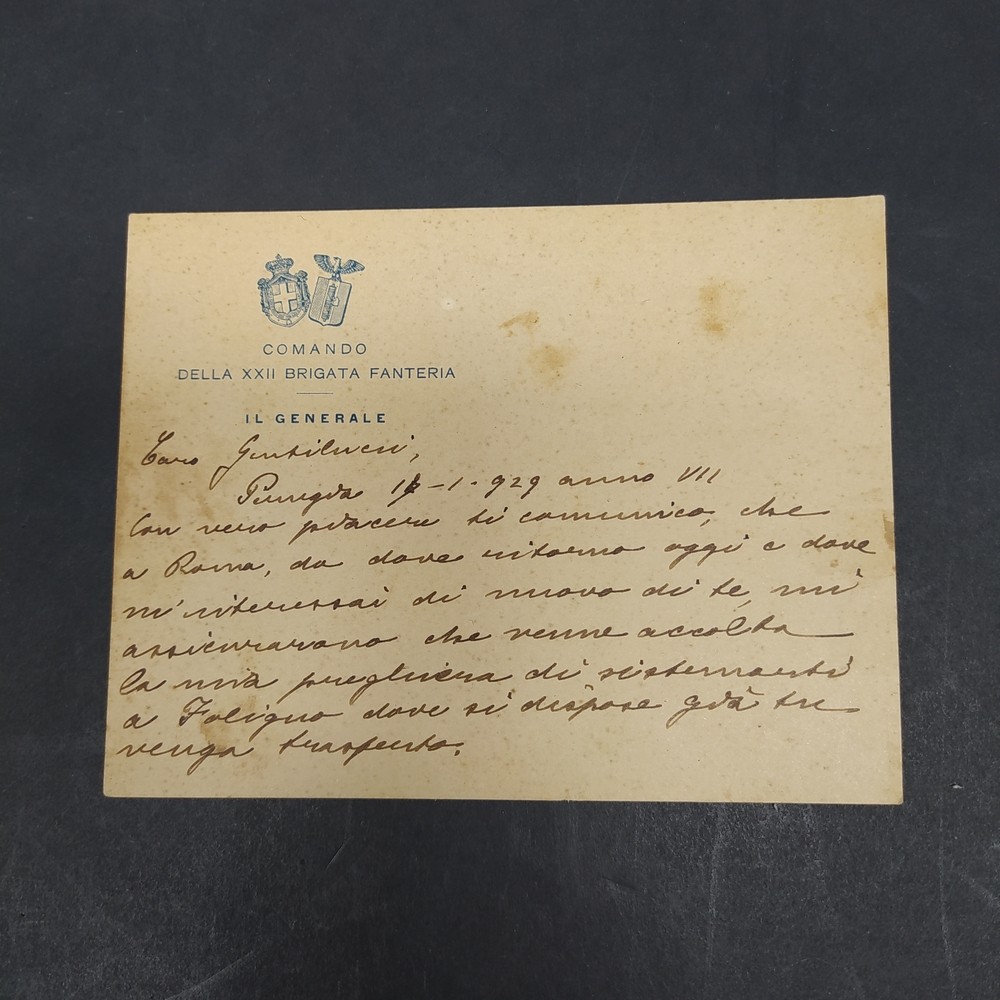 COMANDO
DELLA XXII BRIGATA FANTERIA
IL GENERALE
Caro Gentilucci,
Perugia -1-929 anno VII
Con vero piacere ti comunico, che
a Roma, da dove ritorno oggi e dove
m'interessai di nuovo di te, mi
assicurarono che venne accolta
la mia preghiera di sistemarti
a Foligno dove si dispose già tu
venga trasferito.